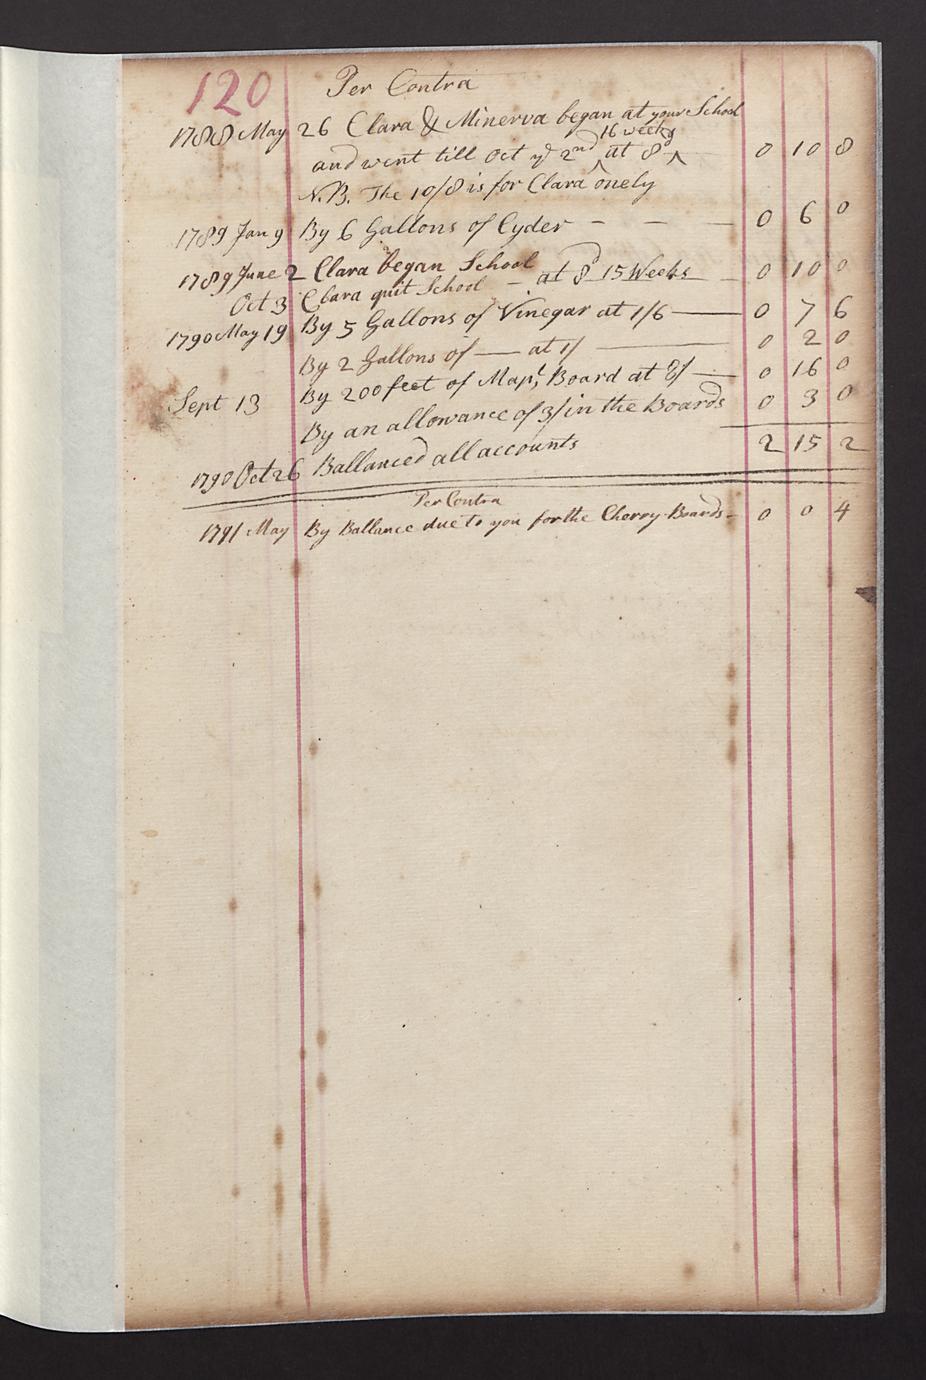 120 Per Contra
1788 May 26 Clara & Minerva began at your School
16 weeks
and went till Oct ye 2nd at 8d ‸ 0 10 8
N.B. The 10/8 is for Clara onely
1789 Jan 9 By 6 Gallons of Cyder – – – 0 6 0
1789 June 2 Clara began School
at 8d 15 Weeks 0 10 0
Oct 3 Clara quit School –
1790 May 19 By 5 Gallons of Vinegar at 1/6 — 0 7 6
By 2 Gallons of — at 1/ — 0 2 0
By 200 feet of Board at 8/ — 0 16 0
Sept 13 By an allowance of 3/ in the Boards 0 3 0
2 15 2
1790 Oct 26 Ballanced all accounts
Per Contra
1791 May By Ballance due to you for the Cherry Boards – 0 0 4